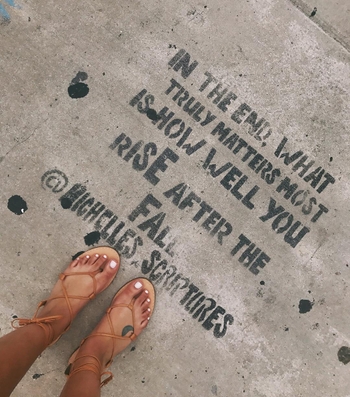 IN THE END, WHAT
TRULY MATTERS MOST
IS HOW WELL YOU
RISE AFTER THE
FALL
@MICHELLES.SCRIPTURES